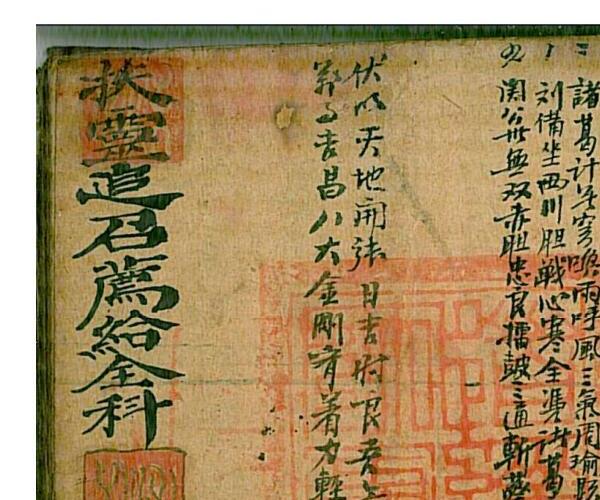 諸葛計是穷喚雨呼風三氣周瑜
刘備坐西川胆戰心寒全凴諸葛
関公世無双赤胆忠良擂鼓三通斬
伏以天地開張日吉时良吾
葬了吉昌八大金剛有着力輕
扶靈追召薦給全科